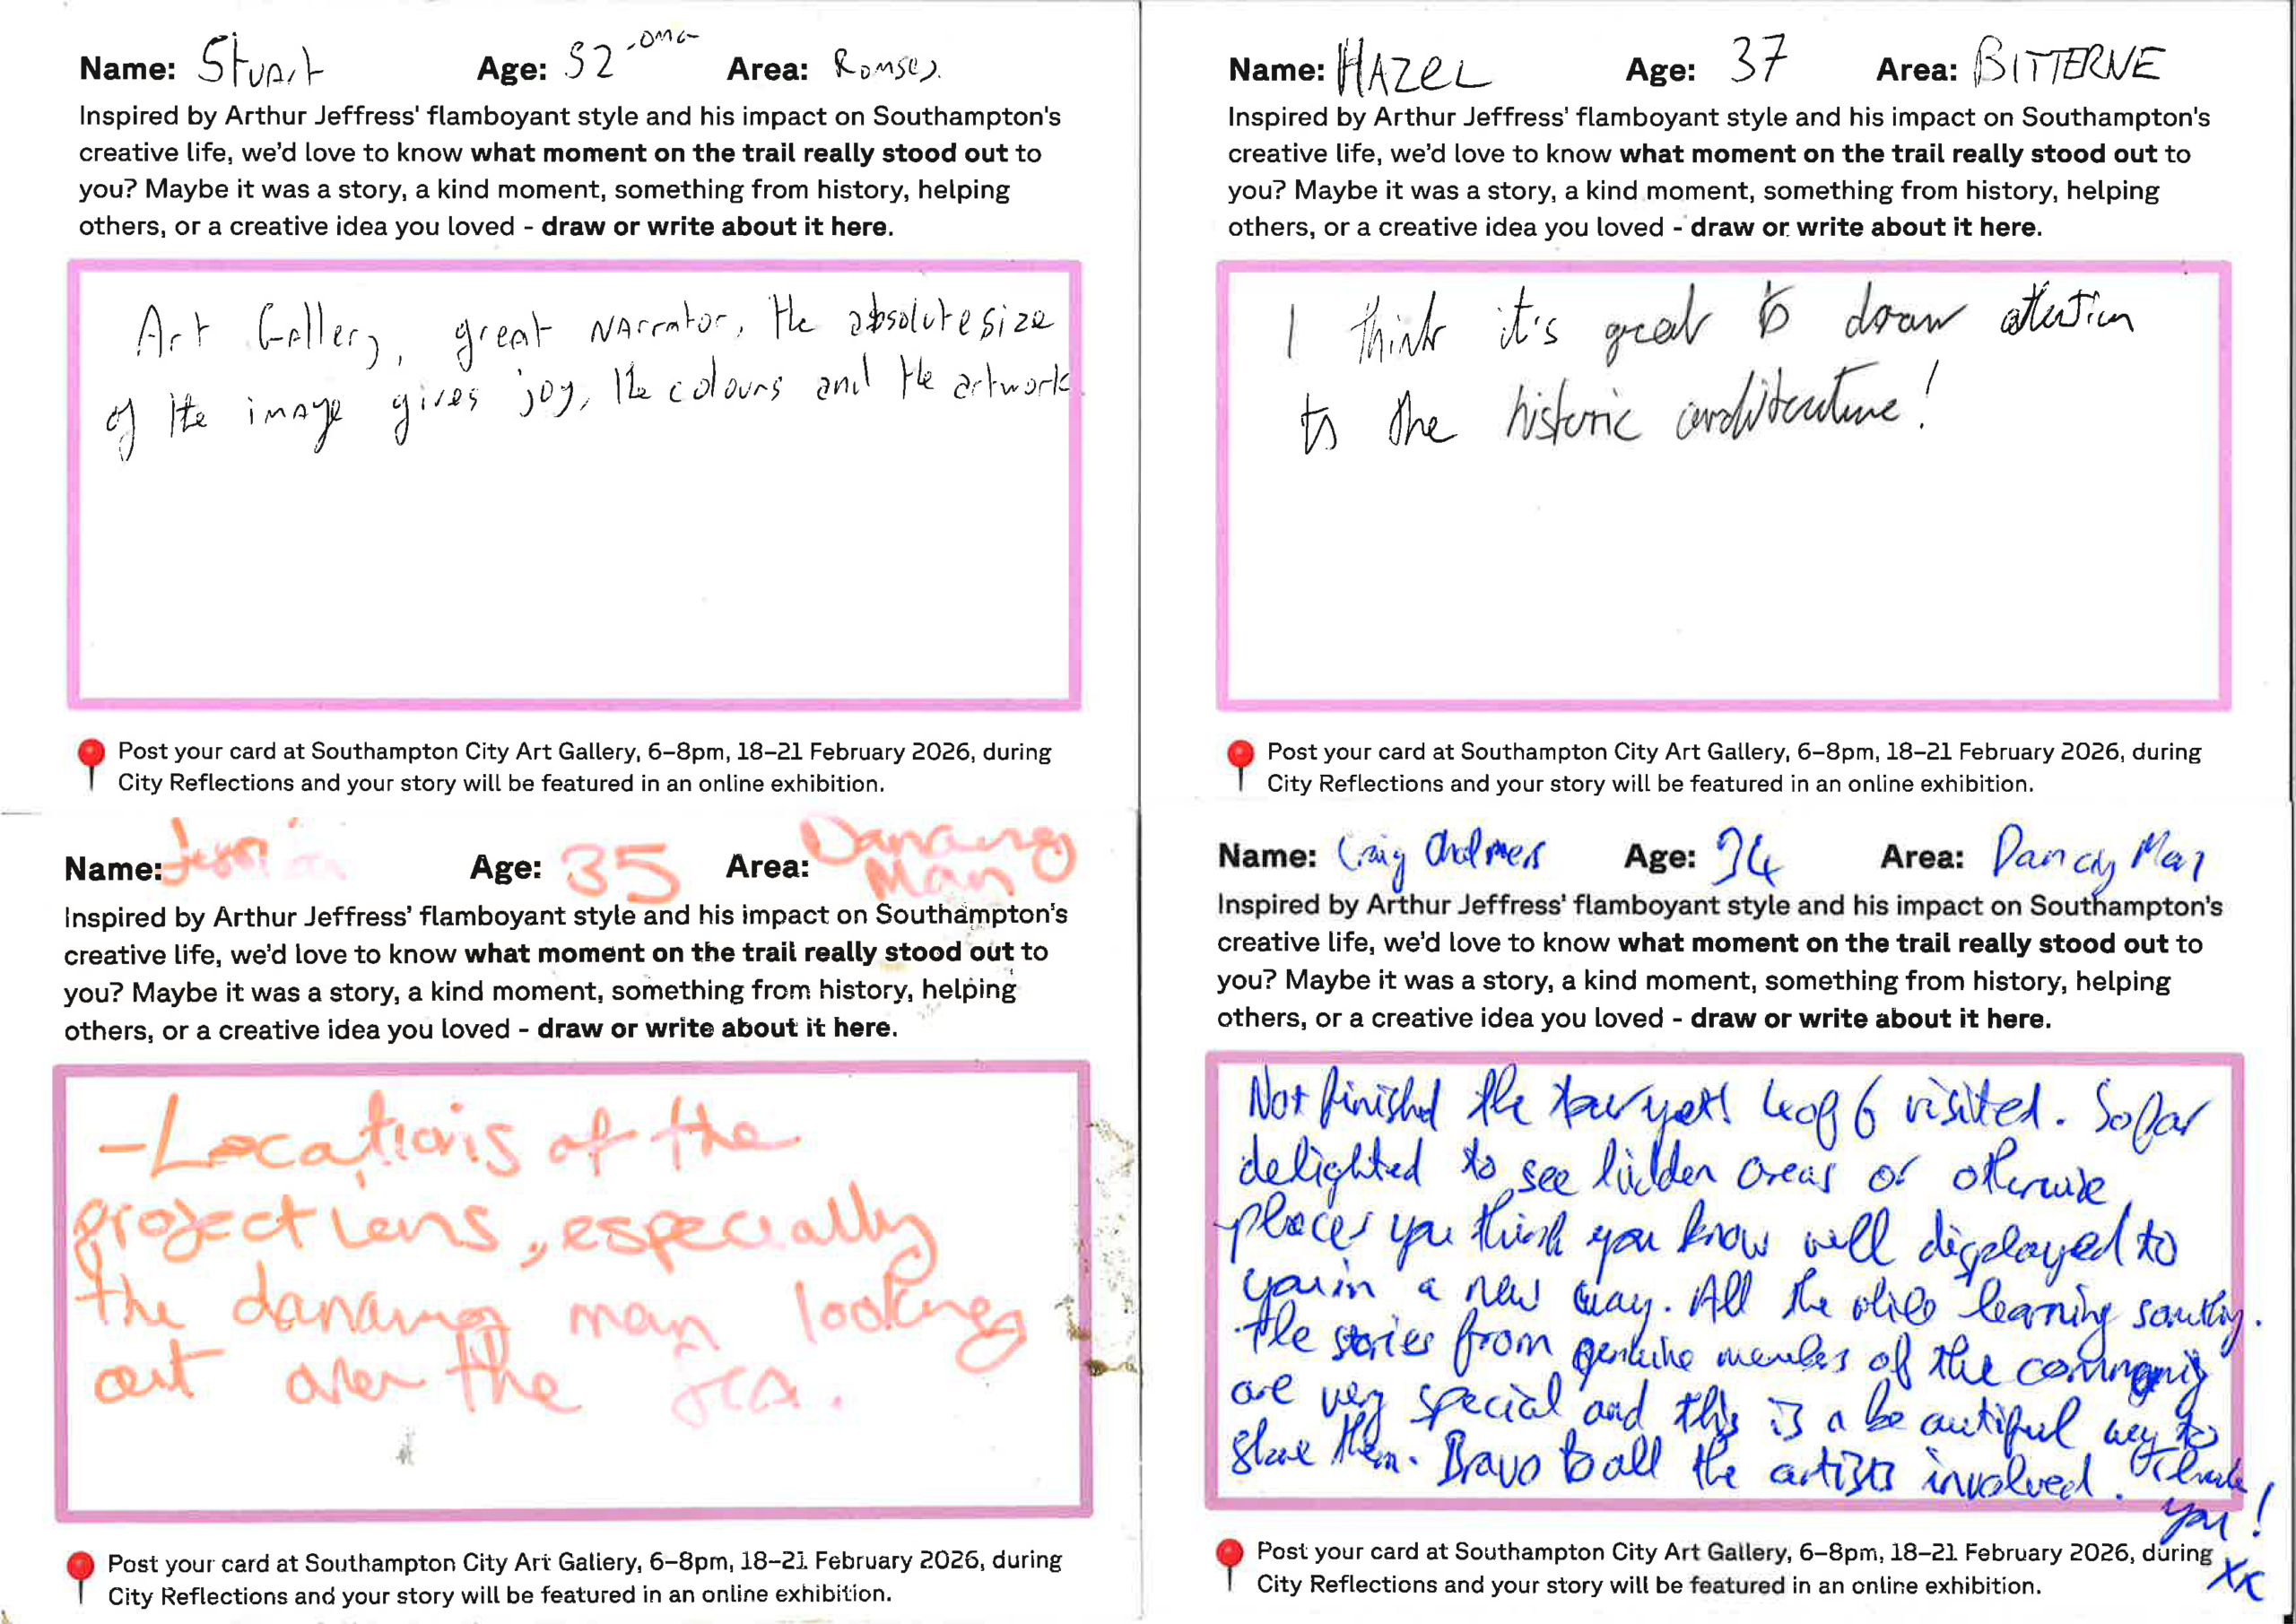 Name: Stuart Age: 52 Area: Romsey
Inspired by Arthur Jeffress' flamboyant style and his impact on Southampton's
creative life, we'd love to know what moment on the trail really stood out to
you? Maybe it was a story, a kind moment, something from history, helping
others, or a creative idea you loved - draw or write about it here.
Art Gallery, great narrator, the absolute size
of the image gives joy, the colours and the artwork.
Post your card at Southampton City Art Gallery, 6–8pm, 18–21 February 2026, during
City Reflections and your story will be featured in an online exhibition.
Name: HAZEL Age: 37 Area: BITTERNE
Inspired by Arthur Jeffress' flamboyant style and his impact on Southampton's
creative life, we'd love to know what moment on the trail really stood out to
you? Maybe it was a story, a kind moment, something from history, helping
others, or a creative idea you loved - draw or write about it here.
I think it's great to draw attention
to the historic architecture!
Post your card at Southampton City Art Gallery, 6–8pm, 18–21 February 2026, during
City Reflections and your story will be featured in an online exhibition.
Name: Age: 35 Area: Dancing
Man
Inspired by Arthur Jeffress' flamboyant style and his impact on Southampton's
creative life, we'd love to know what moment on the trail really stood out to
you? Maybe it was a story, a kind moment, something from history, helping
others, or a creative idea you loved - draw or write about it here.
- Locations of the
projections, especially
the dancing man looking
out over the sea.
Post your card at Southampton City Art Gallery, 6–8pm, 18–21 February 2026, during
City Reflections and your story will be featured in an online exhibition.
Name: Craig Chalmers Age: 34 Area: Dancing Man
Inspired by Arthur Jeffress' flamboyant style and his impact on Southampton's
creative life, we'd love to know what moment on the trail really stood out to
you? Maybe it was a story, a kind moment, something from history, helping
others, or a creative idea you loved - draw or write about it here.
Not finished the tour yet! 4 of 6 visited. So far
delighted to see hidden areas or otherwise
places you think you know well displayed to
you in a new way. All the while learning
The stories from genuine members of the community
are very special and this is a beautiful way to
share them. Bravo to all the artists involved. Thank
you!
xx
Post your card at Southampton City Art Gallery, 6–8pm, 18–21 February 2026, during
City Reflections and your story will be featured in an online exhibition.